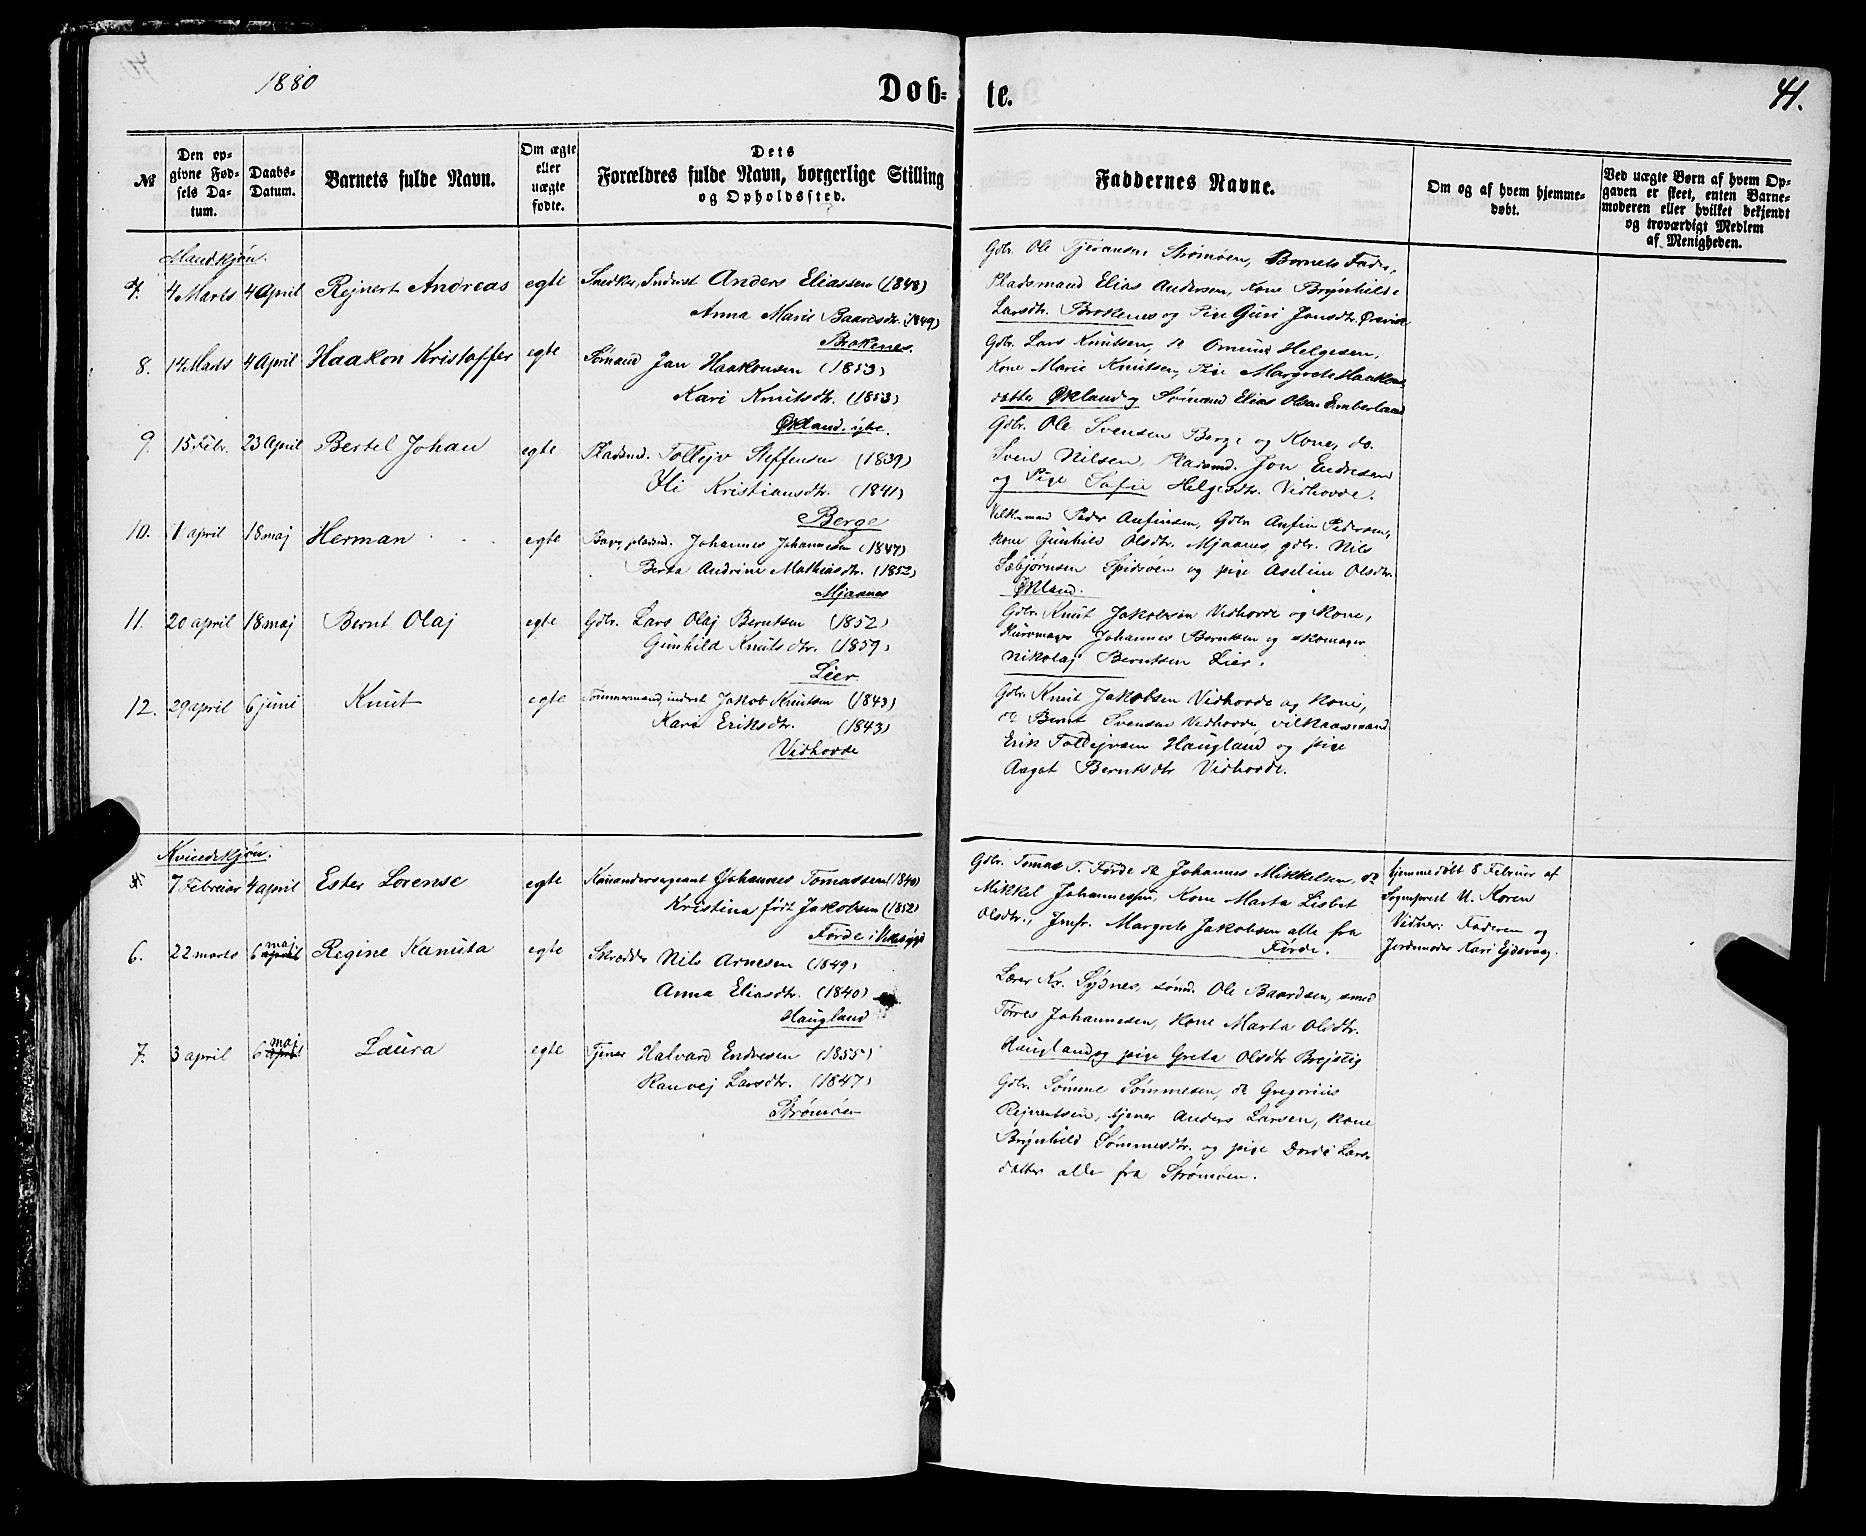 1880
Døb- te.
41.
№
Den opgivne Fødsels Datum.
Daabs-Datum.
Barnets fulde Navn.
Om ægte eller uægte fødte.
Dets Forældres fulde Navn, borgerlige Stilling og Opholdssted.
Faddernes Navne.
Om og af hvem hjemmedøbt.
Ved uægte Børn af hvem Opgaven er skeet, enten Barnemoderen eller hvilket bekjendt og troværdigt Medlem af Menigheden.
Mandkjøn.
7. 4 Marts 4 April Rejnert Andreas egte Snedker, Inderst Anders Eliassen (1848)
Anna Marie Baaresdtr. (1849)
Brokenes.
Gdbr. Ole Strømøen, Barnets Fader,
Pladsmand Elias Andersen, Kone Brynhilde
Larsdtr. Brokenes og Pige Guri Jonsdtr.
8. 14 Marts 4 April Haakon Kristoffer egte Sømand Jan Haakonsen (1853)
Kari Knutsdtr. (1853)
Økland. ytre.
Gdbr. Lars Knutsen, do Omund Helgesen,
Kone Marie Knutsen, Pige Margrete Haakons
datter Økland og Sømand Elias Olsen Emberland
9. 15 Febr. 23 April Bertel Johan egte Pladsmd. Tollejv Steffensen (1839)
Kristiansdtr. (1841)
Berge
Gdbr. Ole Svensen Berge og Kone, do.
Sven Nilsen, Pladsmd. Jon Endresen
og Pige Sofie Helgesdtr. Vidhovde.
10. 1 april 18 maj Herman egte pladsmd. Johannes Johannesen (1847)
Berta Andrine Mathiasdtr. (1852)
Mjaanes
Peder Anfinsen, Gdbr Anfin Pedersen,
Kone Gunhild Olsdtr. Mjaanes, gdbr. Nils
Sæbjørnsen Spidsøen og pige Aseline Olsdtr.
Økland.
11. 20 april 18 maj Bernt Olaj egte Gdbr. Lars Olaj Berntsen (1852)
Gunhild Knutsdtr. (1859)
Lier
Gdbr. Knut Jakobsen Vidhovde og Kone,
Johannes Berntsen og skomager
Nikolaj Berntsen Lier.
12. 29 april 6 juni Knut egte Tømmermand, inderst Jakob Knutsen (1843)
Kari Eriksdtr. (1843)
Vidhovde
Gdbr. Knut Jakobsen Vidhovde og Kone,
do Bernt Svensen Vidhovde, vilkaarsmand
Erik Tollejvsen Haugland og pige
Aagot Berntsdtr Vidhovde.
Kvindekjøn.
5. 7 Februar 4 april Ester Lorense egte Kommandersergeant Johannes Tomassen (1840)
Kristina født Jakobsen (1852)
Førde i Vikebygd
Gdbr. Tomas T. Førde do Johannes Mikkelsen, do
Mikkel Johannessen, Kone Marta Lisbet
Olsdtr., Jmfr. Margrete Jakobsen alle fra
Førde.
hjemmedøbt 8 Februar af
Sogneprest U. Koren
Vidner: Faderen og
Jordemoder Kari Ejdsvaag.
6. 22 marts 6 maj april Regine Kanuta egte Skrædder Nils Arnesen (1849)
Anna Eliasdtr. (1840)
Haugland
Lærer Kr. Sydnes, sømd. Ole Baardsen, smed
Tørres Johannesen, Kone Marta Olsdtr.
Haugland og pige Greta Olsdtr Brejstig
7. 3 april 6 maj april Laura egte Tjener Halvard Endresen (1855)
Ranvej Larsdtr. (1847)
Strømøen
Gdbr. Sømme Sømmesen, do Gregorius
Rejnertsen, tjener Anders Larsen, Kone
Brynhild Sømmesdtr. og pige Dordi Lars
datter alle fra Strømøen.